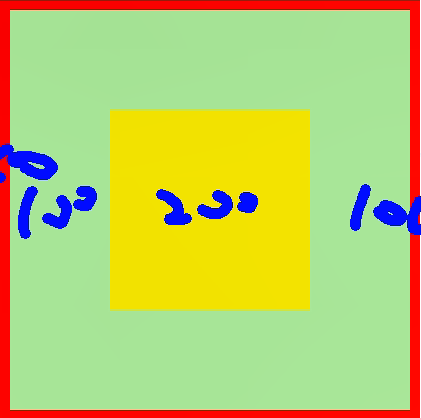 100 200 100